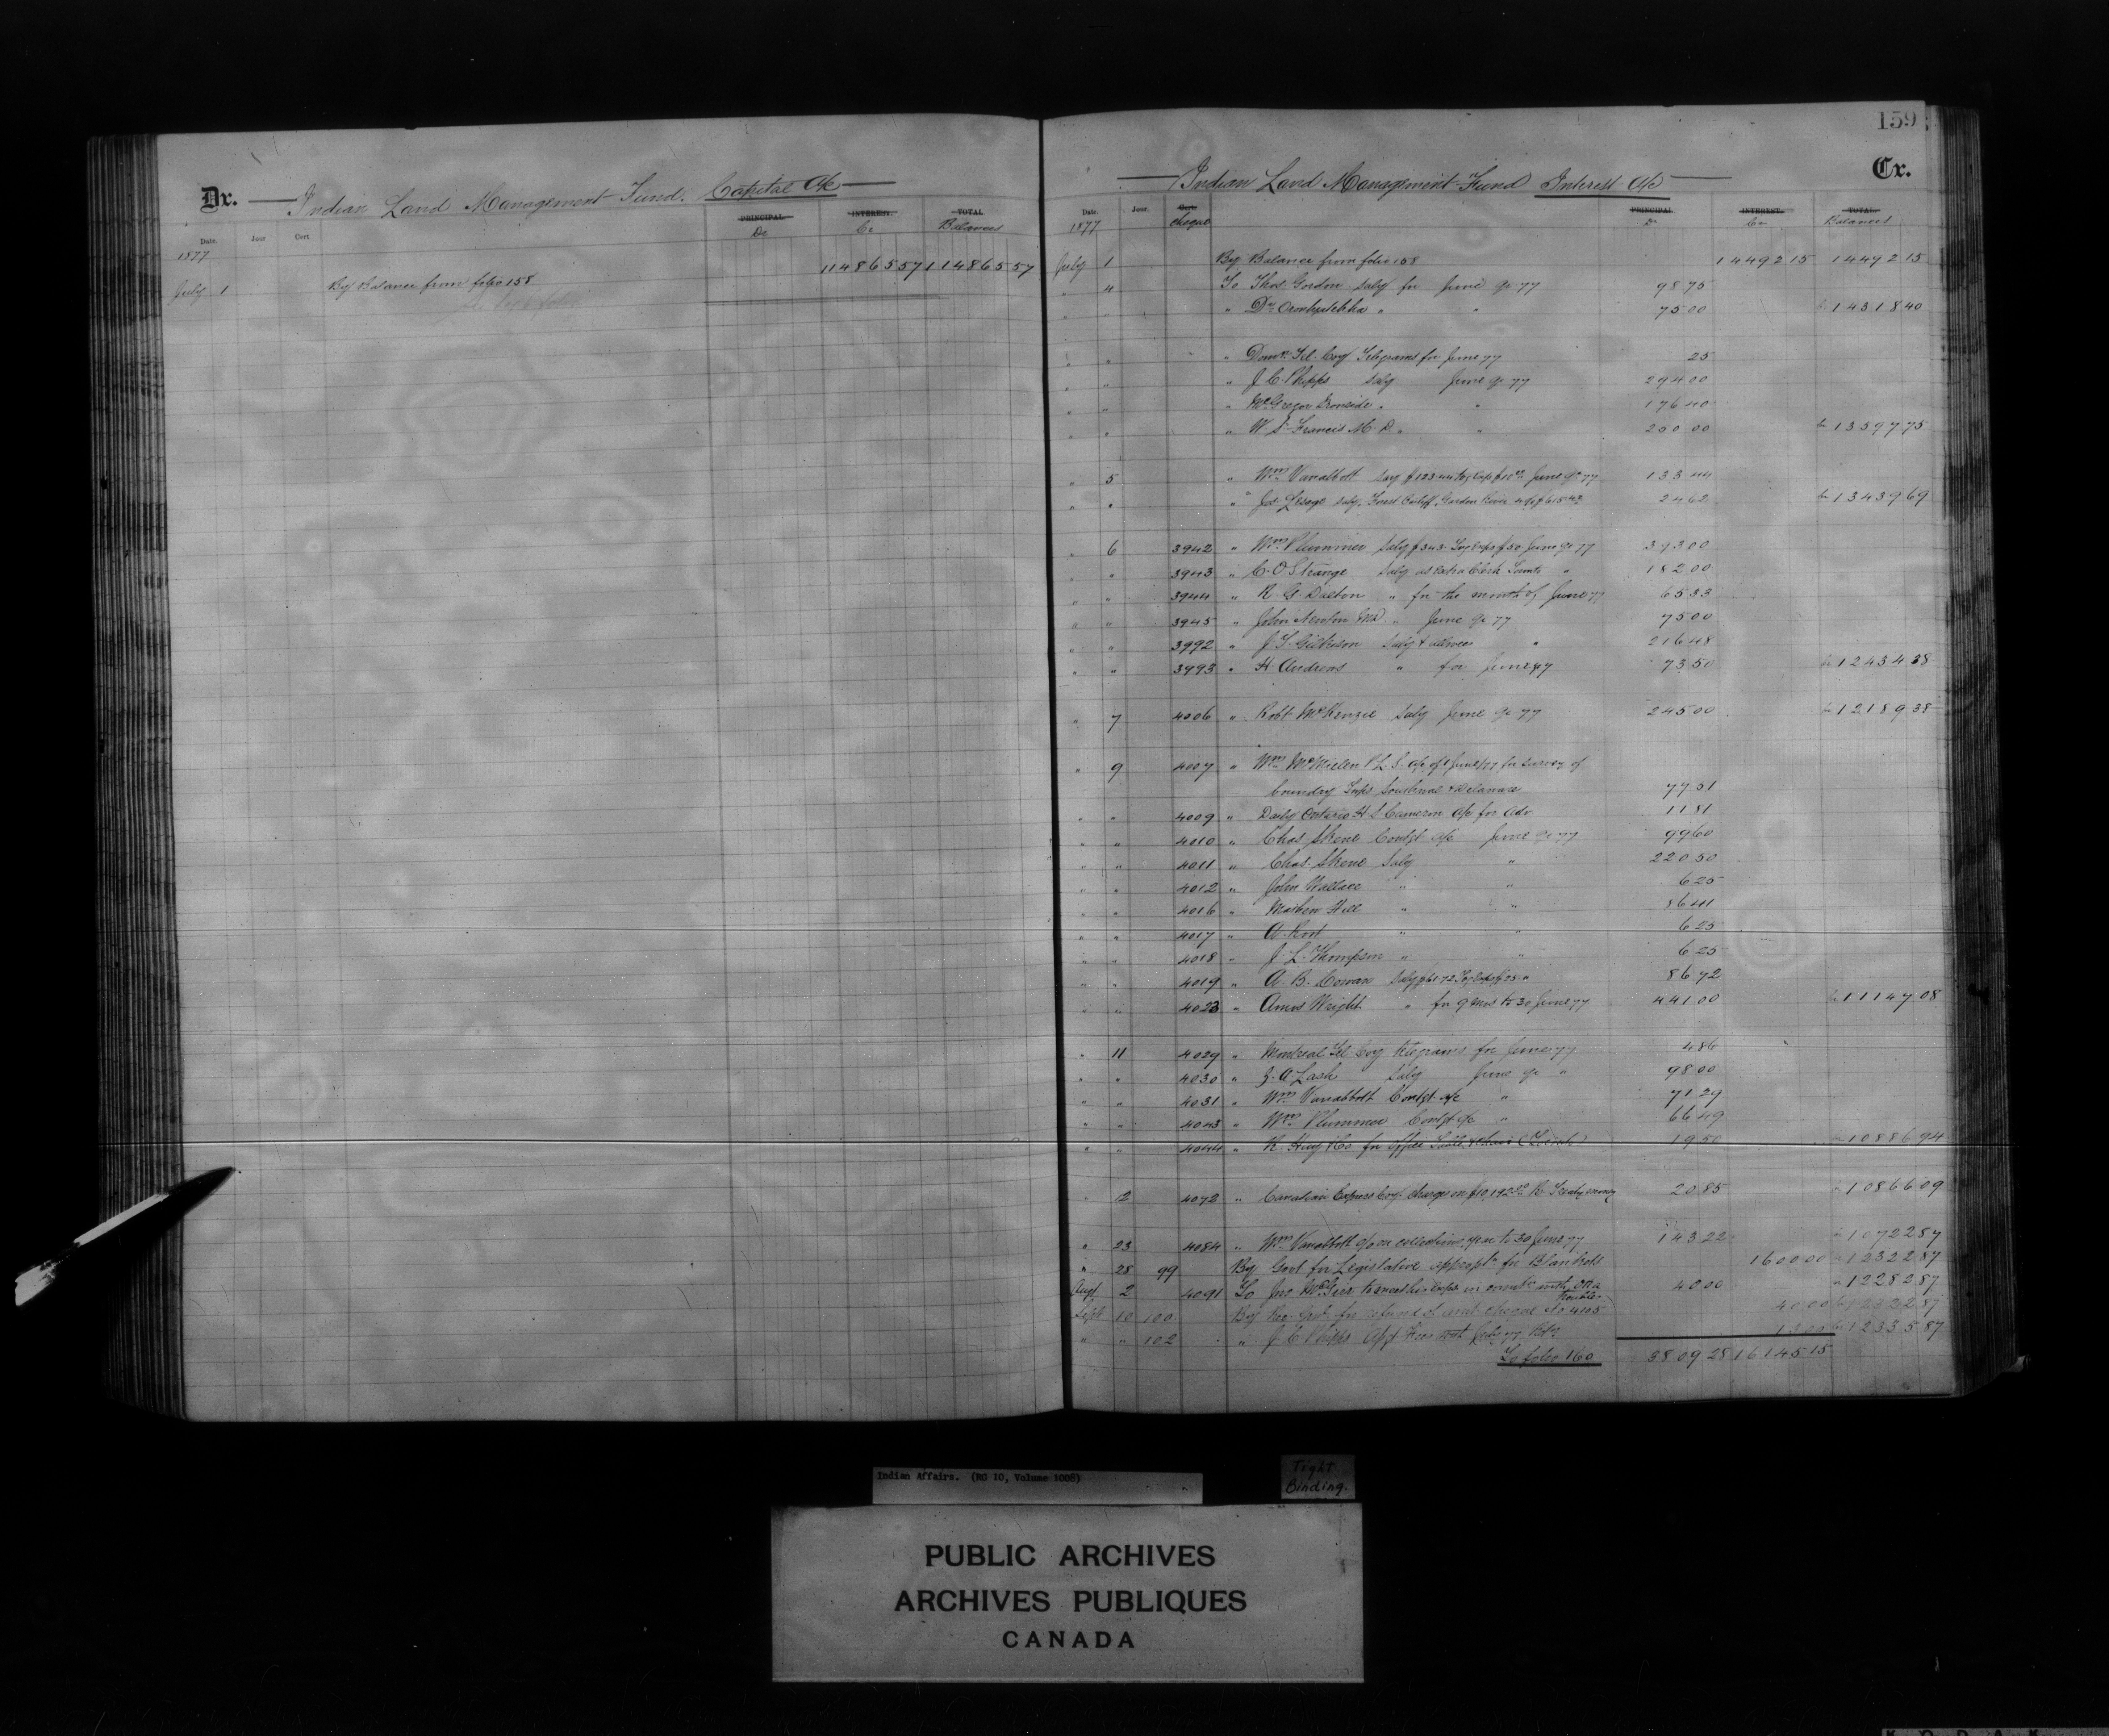 159
Dr. Indian Land Management Fund. Capital a/c
PRINCIPAL INTEREST. TOTAL
Date. Jour Cert Dr Cr Balances
1877
July 1 By Balance from folio 158 114865 57 114865 57
Indian Land Management Fund Interest a/c Cr.
Date. Jour. Cert. PRINCIPAL INTEREST. TOTAL.
1877 cheque Dr Cr Balances
July 1 By Balance from folio 158 14492 15 14492 15
" 4 To Thos. Gordon Saly for June qr 77 98 75
" " " Dr. Oronhyatekha " " 75 00 Cr 14318 40
" " " Domn. Tel. Coy Telegrams for June 77 25
" " " J. C. Phipps Saly June qr 77 294 00
" " " McGregor Ironside " " 176 40
" " " W. S. Francis M.D. " " 250 00 Cr 13597 75
" 5 " Wm Vanabbott Saly $123.44 Tvg Exps $10.00 June qr 77 133 44
" " " Jos. Lesage Saly, Forest Bailiff, Garden River 24 62 Cr 13439 69
" 6 3942 " Wm. Plummer Saly $343. Tvg Exps $50 June qr 77 393 00
" " 3943 " C. O. Strange Saly as extra Clerk Toronto " 182 00
" " 3944 " R. G. Dalton " for the month of June 77 65 33
" " 3945 " John Newton MD. " June qr 77 75 00
" " 3992 " J. T. Gilkison Saly & allnce " 216 48
" " 3993 " H. Andrews " for June 77 73 50 Cr 12434 38
" 7 4006 " Robt McKenzie Saly June qr 77 245 00 Cr 12189 38
" 9 4007 " Wm. McMillen P.L.S. a/c of June/77 for survey of
boundary Twps Southwold & Delaware 77 51
" " 4009 " Daily Ontario H. S. Cameron a/c for Adv. 11 81
" " 4010 " Chas. Skene Contgt a/c June qr 77 99 60
" " 4011 " Chas. Skene Saly " 220 50
" " 4012 " John Wallace " " 6 25
" " 4016 " Mathew Hill " " 86 41
" " 4017 " A. Root " " 6 25
" " 4018 " J. L. Thompson " " 6 25
" " 4019 " A. B. Cowan Saly $61.72 Tvg Exps $25 " 86 72
" " 4023 " Amos Wright " for 9 mos to 30 June 77 441 00 Cr 11147 08
" 11 4029 " Montreal Tel Coy telegrams for June 77 4 86
" " 4030 " Z. A. Lash Saly June qr " 98 00
" " 4031 " Wm Vanabbott Contgt a/c " 71 29
" " 4043 " Wm Plummer Contgt a/c " 66 49
" " 4044 " R. Hay & Co for office Table & chair (Toronto) 19 50 Cr 10886 94
" 12 4072 " Canadian Express Coy. charge on $10,192.50 R. Treaty money 20 85 Cr 10866 09
" 23 4084 " Wm Vanabbott c/o on collections, year to 30 June 77 143 22 Cr 10722 87
" 28 99 By Govt for Legislative appropn. for Blankets 1600 00 Cr 12322 87
Augt 2 4091 To Jno McGirr to meet his exps in connetn. with Oka troubles 40 00 Cr 12282 87
Sept 10 100 By Rec. Genl. for refund of amt. cheque No 4105 40 00 Cr 12322 87
" " 102 " J. C. Phipps 13 00 Cr 12335 87
To folio 160 3809 28 16145 15
Indian Affairs. (RG 10, Volume 1008)
Tight
Binding.
PUBLIC ARCHIVES
ARCHIVES PUBLIQUES
CANADA